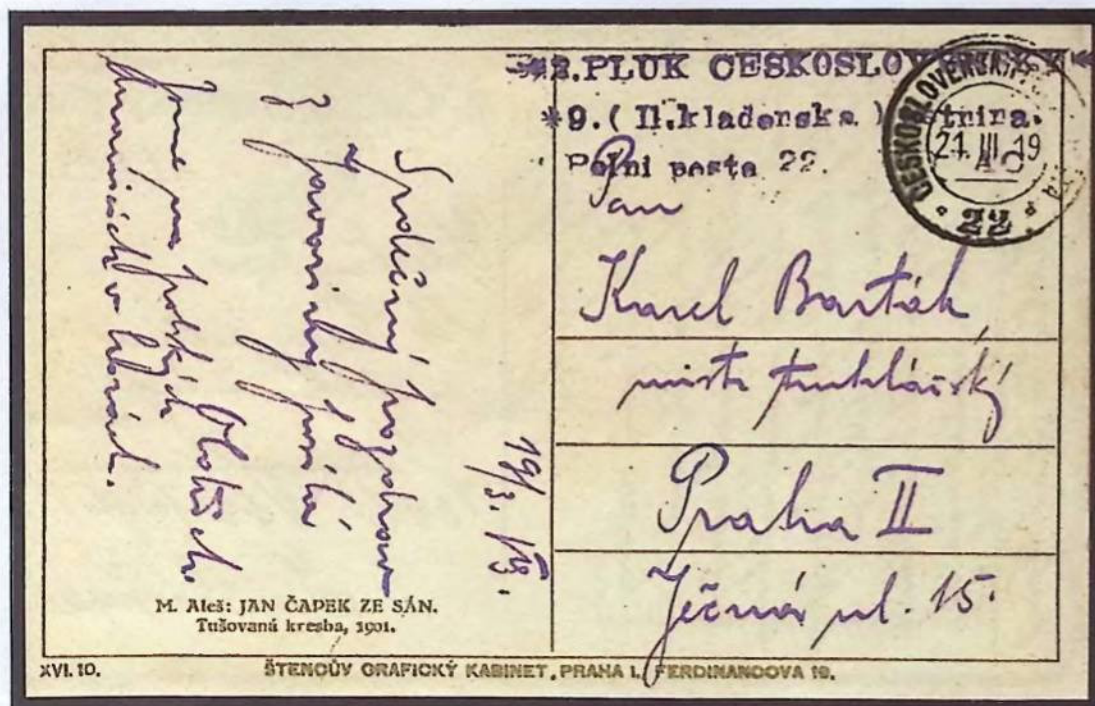 *2.PLUK CESKOSLOVENSKY*
*9.( II.kladenska ) setnina.
Polni posta 22.
ČESKOSLOVENSK
21.III.19
22
Pan
Karel Barták
mistr truhlářský
Praha II
Ječná ul. 15.
19/3. 19.
Srdečný pozdrav
z Javoriny posílá
Jsme na polských
hranicích v horách.
M. Aleš: JAN ČAPEK ZE SÁN.
Tušovaná kresba, 1901.
XVI. 10.
ŠTENCŮV GRAFICKÝ KABINET, PRAHA I., FERDINANDOVA 19.